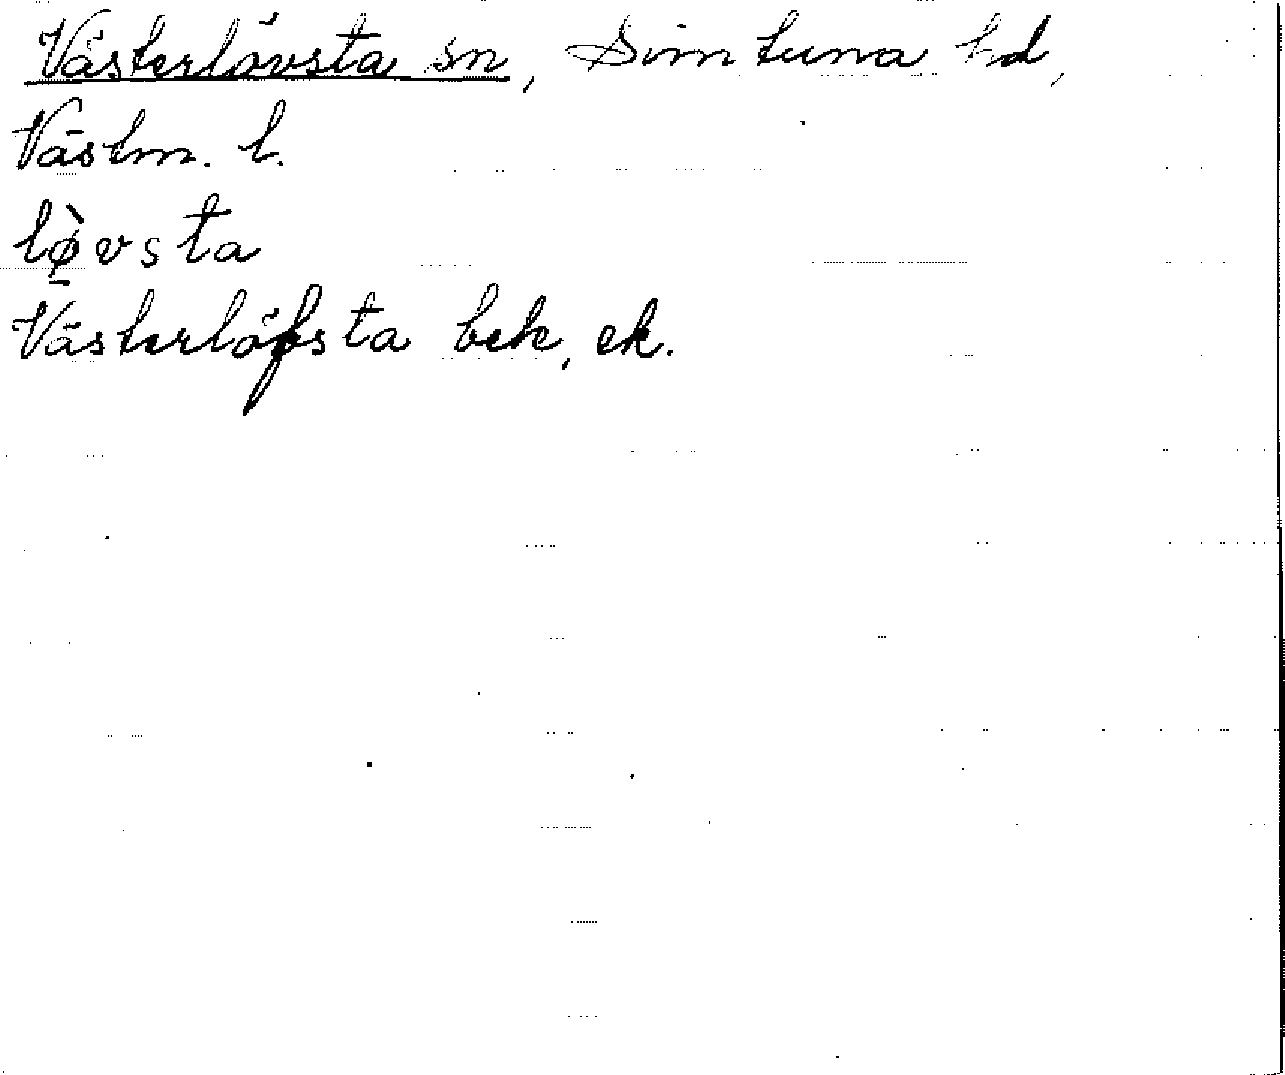 Västerlövsta sn, Simtuna hd,
Västm. l.
lø̱̀vsta
Västerlöfsta bek, ek.